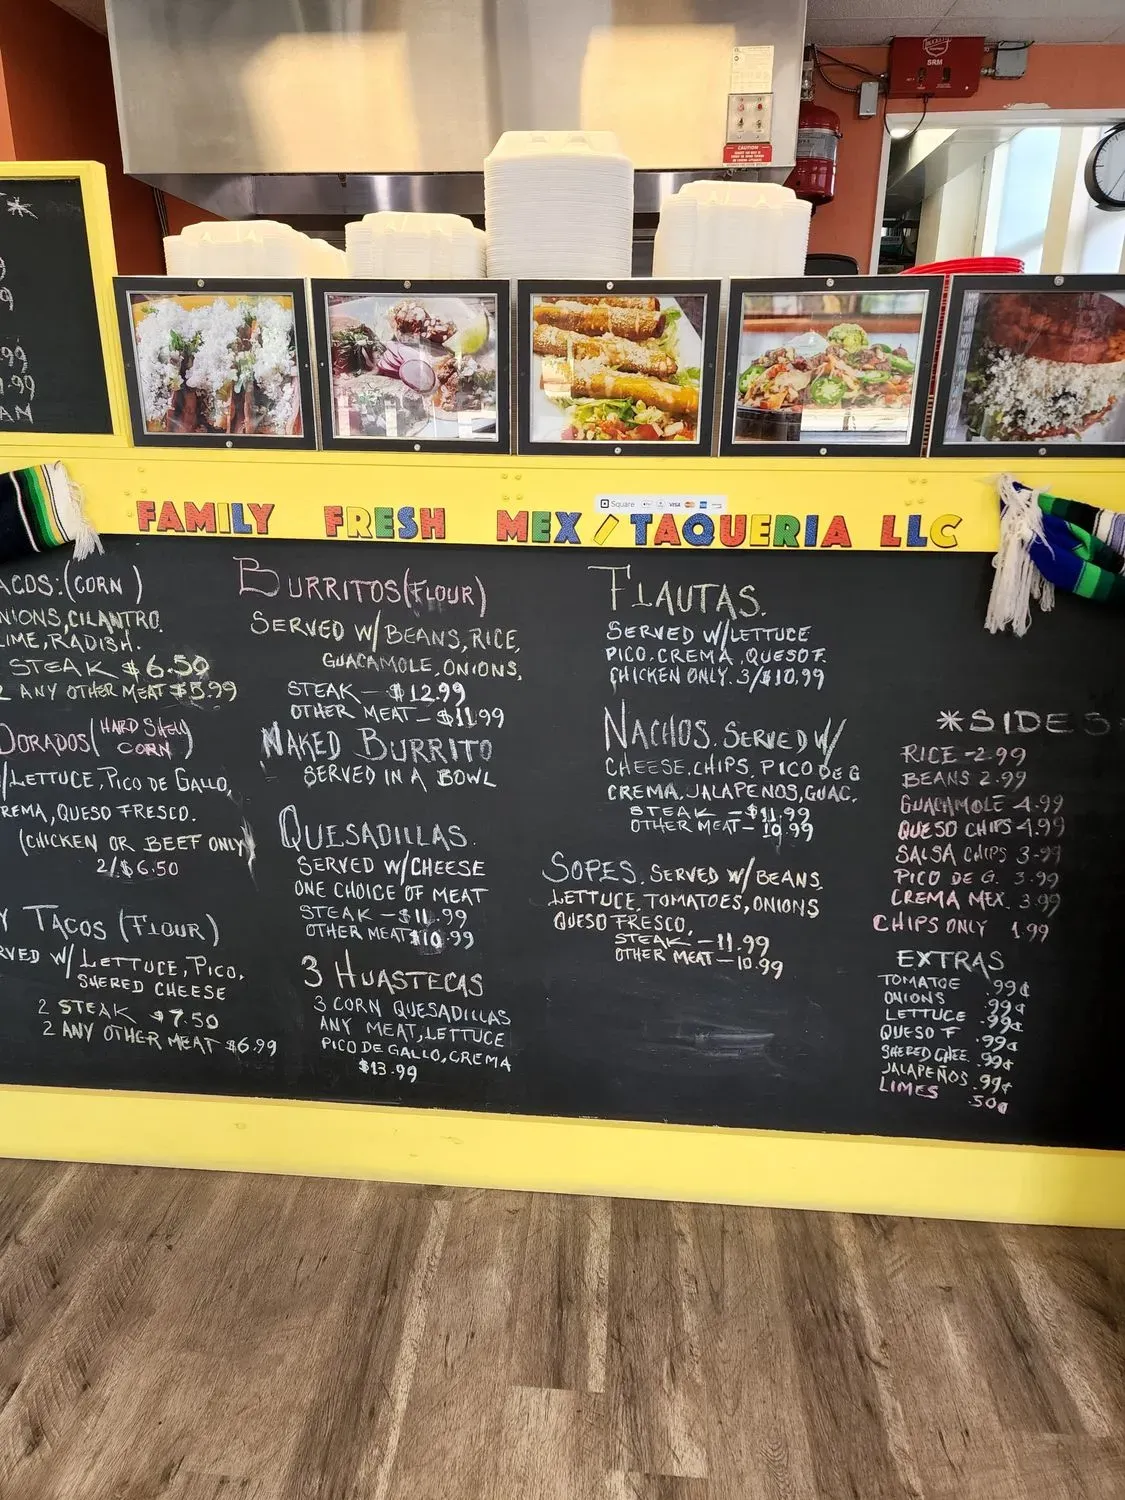 SRM
CAUTION
.99
.99
AM
FAMILY FRESH MEX / TAQUERIA LLC
Square
VISA
ACOS.(CORN)
NIONS,CILANTRO.
IME,RADISH.
STEAK $6.50
2 ANY OTHER MEAT $5.99
DORADOS(HARD SHELL
CORN)
/LETTUCE,PICO DE GALLO,
REMA,QUESO FRESCO.
(CHICKEN OR BEEF ONLY)
2/$6.50
Y TACOS (FLOUR)
RVED W/LETTUCE,PICO,
SHERED CHEESE
2 STEAK $7.50
2 ANY OTHER MEAT $6.99
BURRITOS(FLOUR)
SERVED W/BEANS,RICE,
GUACAMOLE,ONIONS,
STEAK — $12.99
OTHER MEAT — $11.99
NAKED BURRITO
SERVED IN A BOWL
QUESADILLAS.
SERVED W/CHEESE
ONE CHOICE OF MEAT
STEAK — $11.99
OTHER MEAT $10.99
3 HUASTECAS
3 CORN QUESADILLAS
ANY MEAT,LETTUCE
PICO DE GALLO,CREMA
$13.99
FLAUTAS.
SERVED W/LETTUCE
PICO.CREMA,QUESO F.
CHICKEN ONLY. 3/$10.99
NACHOS. SERVED W/
CHEESE.CHIPS, PICO DE G
CREMA, JALAPENOS,GUAC.
STEAK — $11.99
OTHER MEAT — 10.99
SOPES. SERVED W/BEANS.
LETTUCE,TOMATOES,ONIONS
QUESO FRESCO,
STEAK — 11.99
OTHER MEAT — 10.99
*SIDES
RICE -2.99
BEANS 2.99
GUACAMOLE 4.99
QUESO CHIPS 4.99
SALSA CHIPS 3.99
PICO DE G. 3.99
CREMA MEX. 3.99
CHIPS ONLY 1.99
EXTRAS
TOMATOE .99¢
ONIONS .99¢
LETTUCE .99¢
QUESO F .99¢
SHERED CHEE. .99¢
JALAPEÑOS .99¢
LIMES .50¢